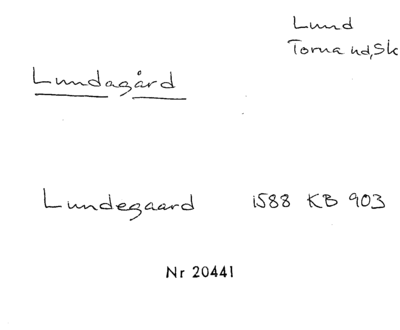 Lund
Torna hd, Sk
Lundagård
Lundegaard 1588 KB 903
Nr 20441